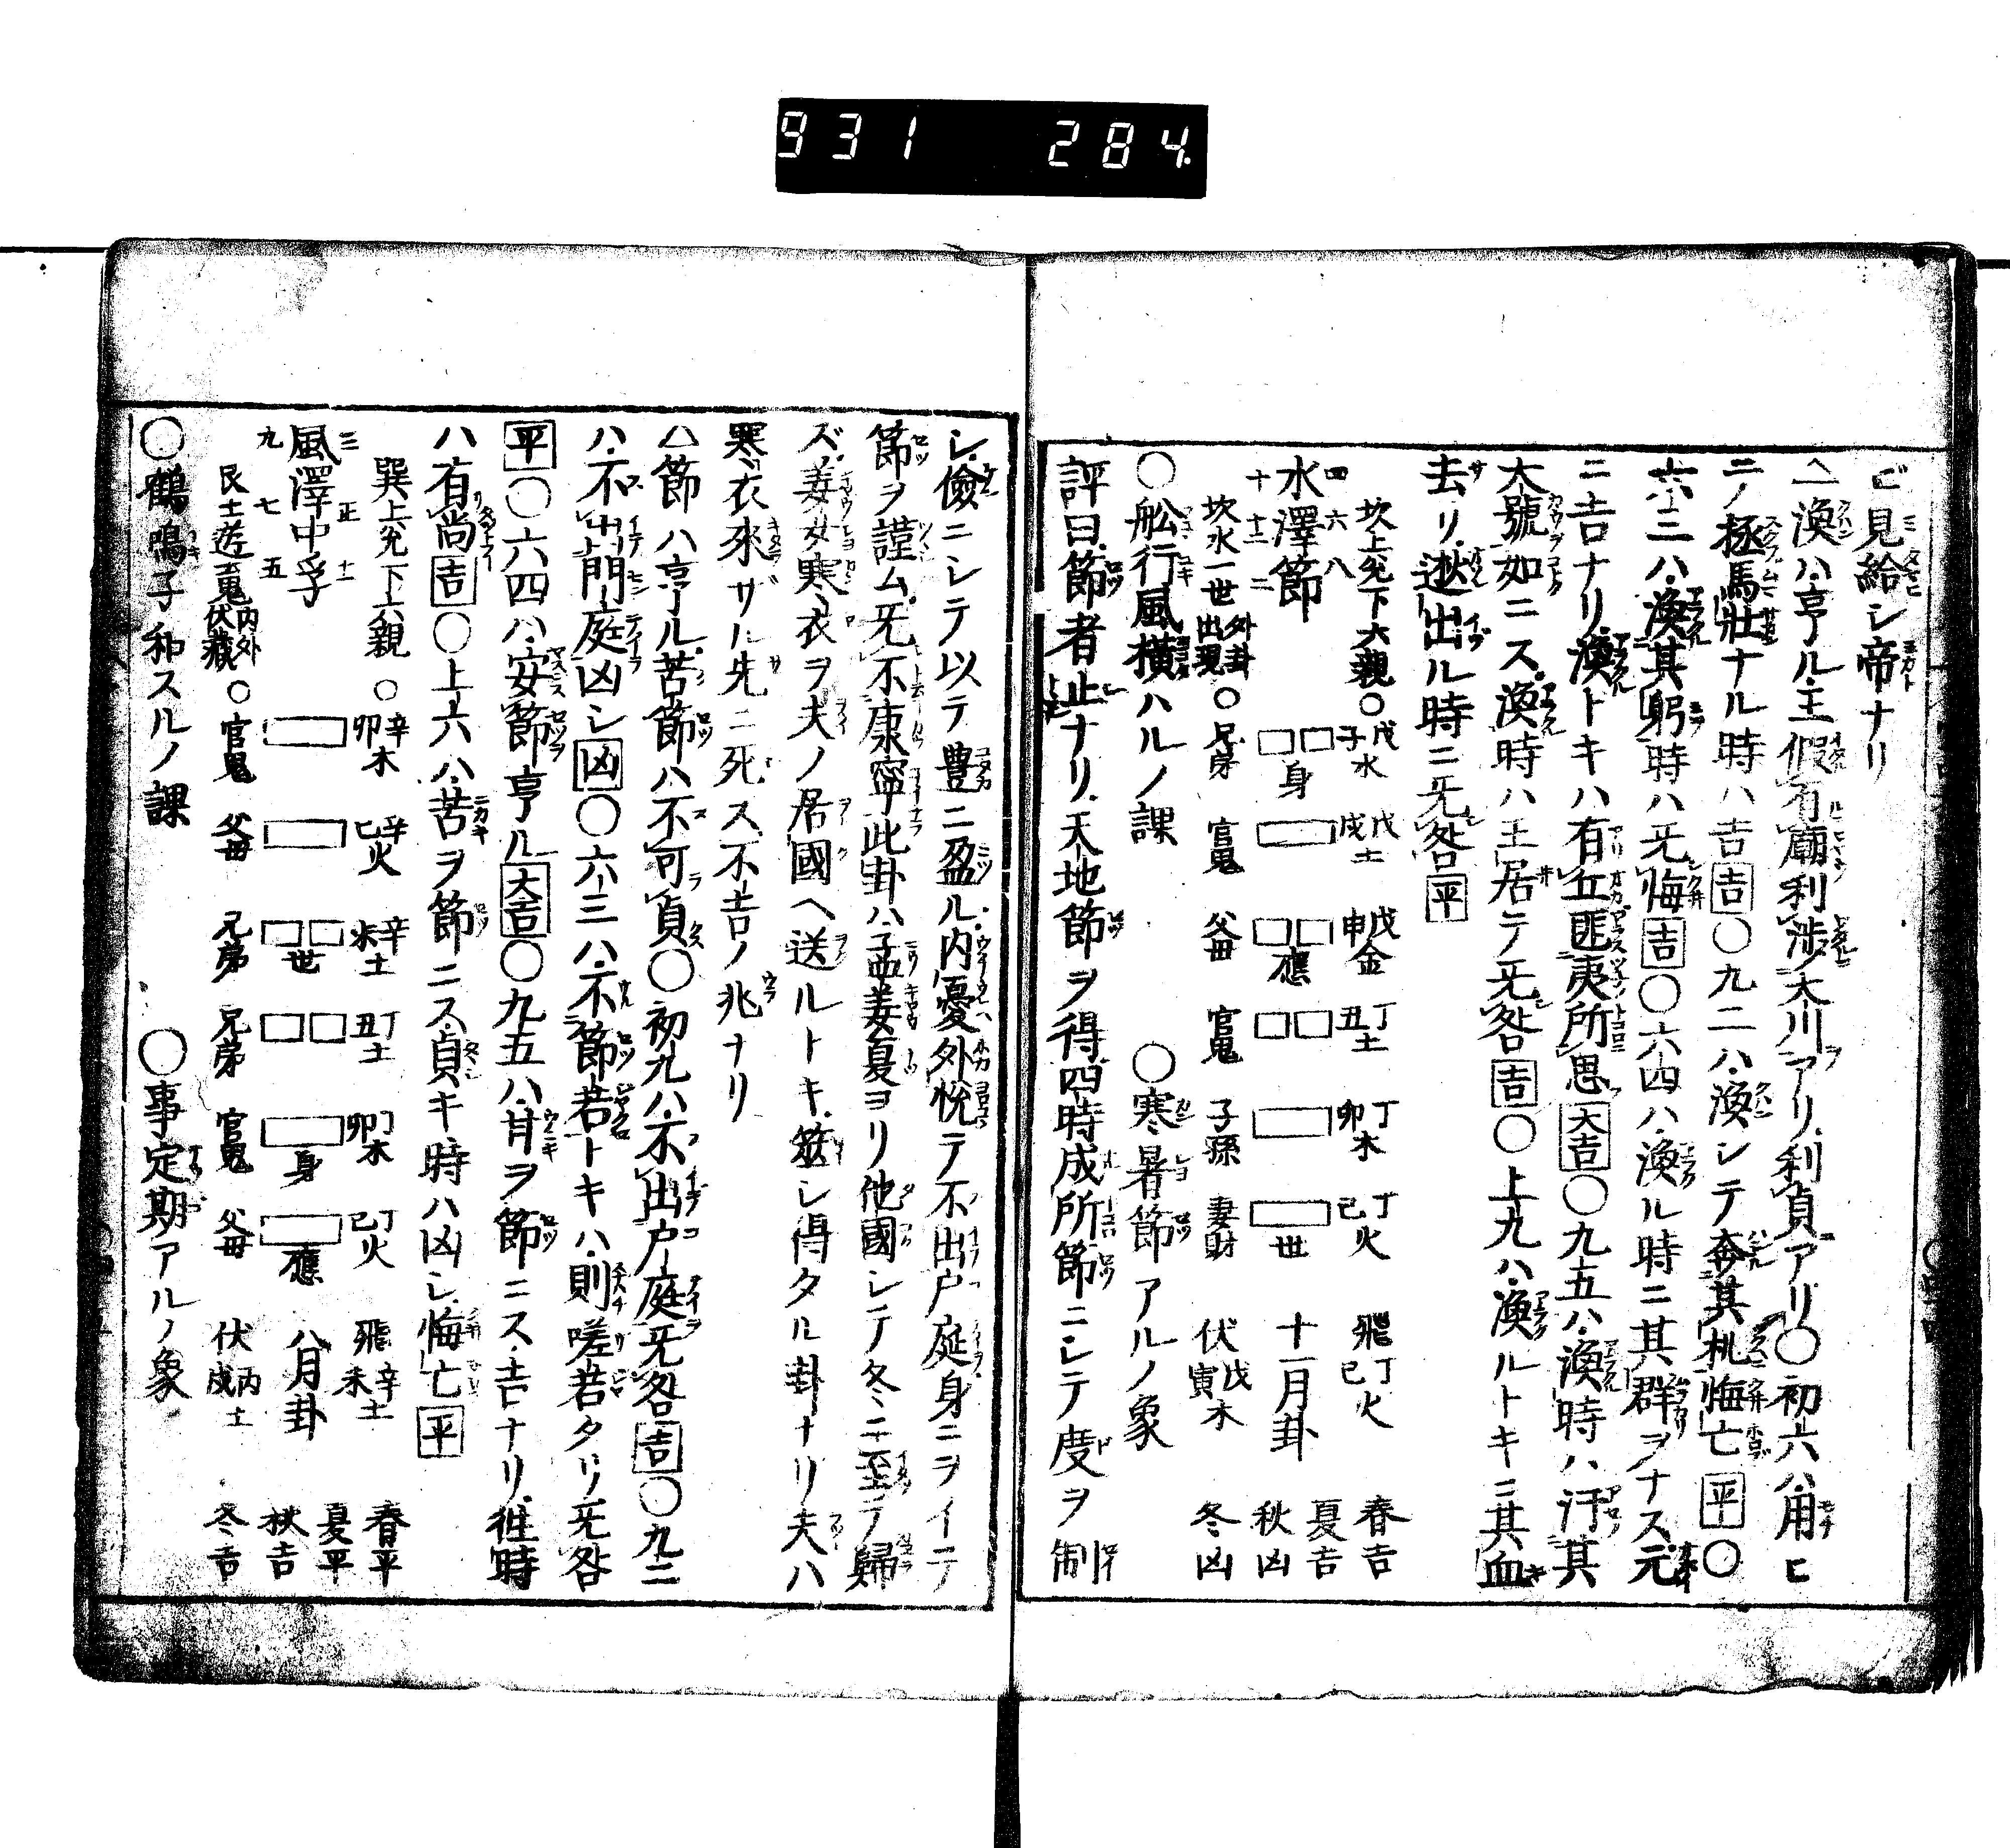 931 284
ビ見給シ帝ナリ
△渙ハ亨ル王假有廟利涉大川アリ利貞アリ〇初六ハ用ヒ
テ極馬壯ナル時ハ吉吉〇九二ハ渙シテ奔其机悔亡平〇
六三ハ渙其躬時ハ无悔吉〇六四ハ渙ル時ニ其群ヲナス元
ニ吉ナリ渙トキハ有丘匪夷所思大吉〇九五ハ渙時ハ汗其
大號如ニス渙時ハ王居テ无咎吉〇上九ハ渙ルトキニ其血
去リ逖出ル時ニ无咎平
四六八
坎上兌下六親〇
水澤節
十十二二
坎水一世外卦出現〇
戊子水 戊戌土 戊申金 丁丑土 丁卯木 丁巳火
身 應 世
兄弟 官鬼 父母 官鬼 子孫 妻財
飛丁巳火
十一月卦
伏戊寅木
春吉
夏吉
秋凶
冬凶
〇舩行風橫ハルノ課 〇寒暑節アルノ象
評曰節者止ナリ天地節ヲ得四時成所節ニシテ度ヲ制
シ儉ニシテ以テ豊ニ盈ル内憂外悅テ不出戸庭身ニヲイテ
節ヲ謹ム无不康寧此卦ハ孟姜夏ヨリ他國シテ冬ニ至テ歸
ズ姜女寒衣ヲ夫ノ居國ヘ送ルトキ筮シ得タル卦ナリ夫ハ
寒衣來ザル先ニ死ス不吉ノ兆ナリ
△節ハ亨ル苦節ハ不可貞〇初九ハ不出戸庭无咎吉〇九二
ハ不出門庭凶シ凶〇六三ハ不節若トキハ則嗟若タリ无咎
平〇六四ハ安節亨ル大吉〇九五ハ甘ヲ節ニス吉ナリ徃時
ハ有尚吉〇上六ハ苦ヲ節ニス貞キ時ハ凶シ悔亡平
三正十一
巽上兌下六親〇
風澤中孚
九七五
艮土遊鬼内外伏藏〇
辛卯木 辛巳火 辛未土 丁丑土 丁卯木 丁巳火
世 身 應
官鬼 父母 兄弟 兄弟 官鬼 父母
飛辛未土
八月卦
伏丙戌土
春平
夏平
秋吉
冬吉
〇鶴鳴子和スルノ課 〇事定期アルノ象